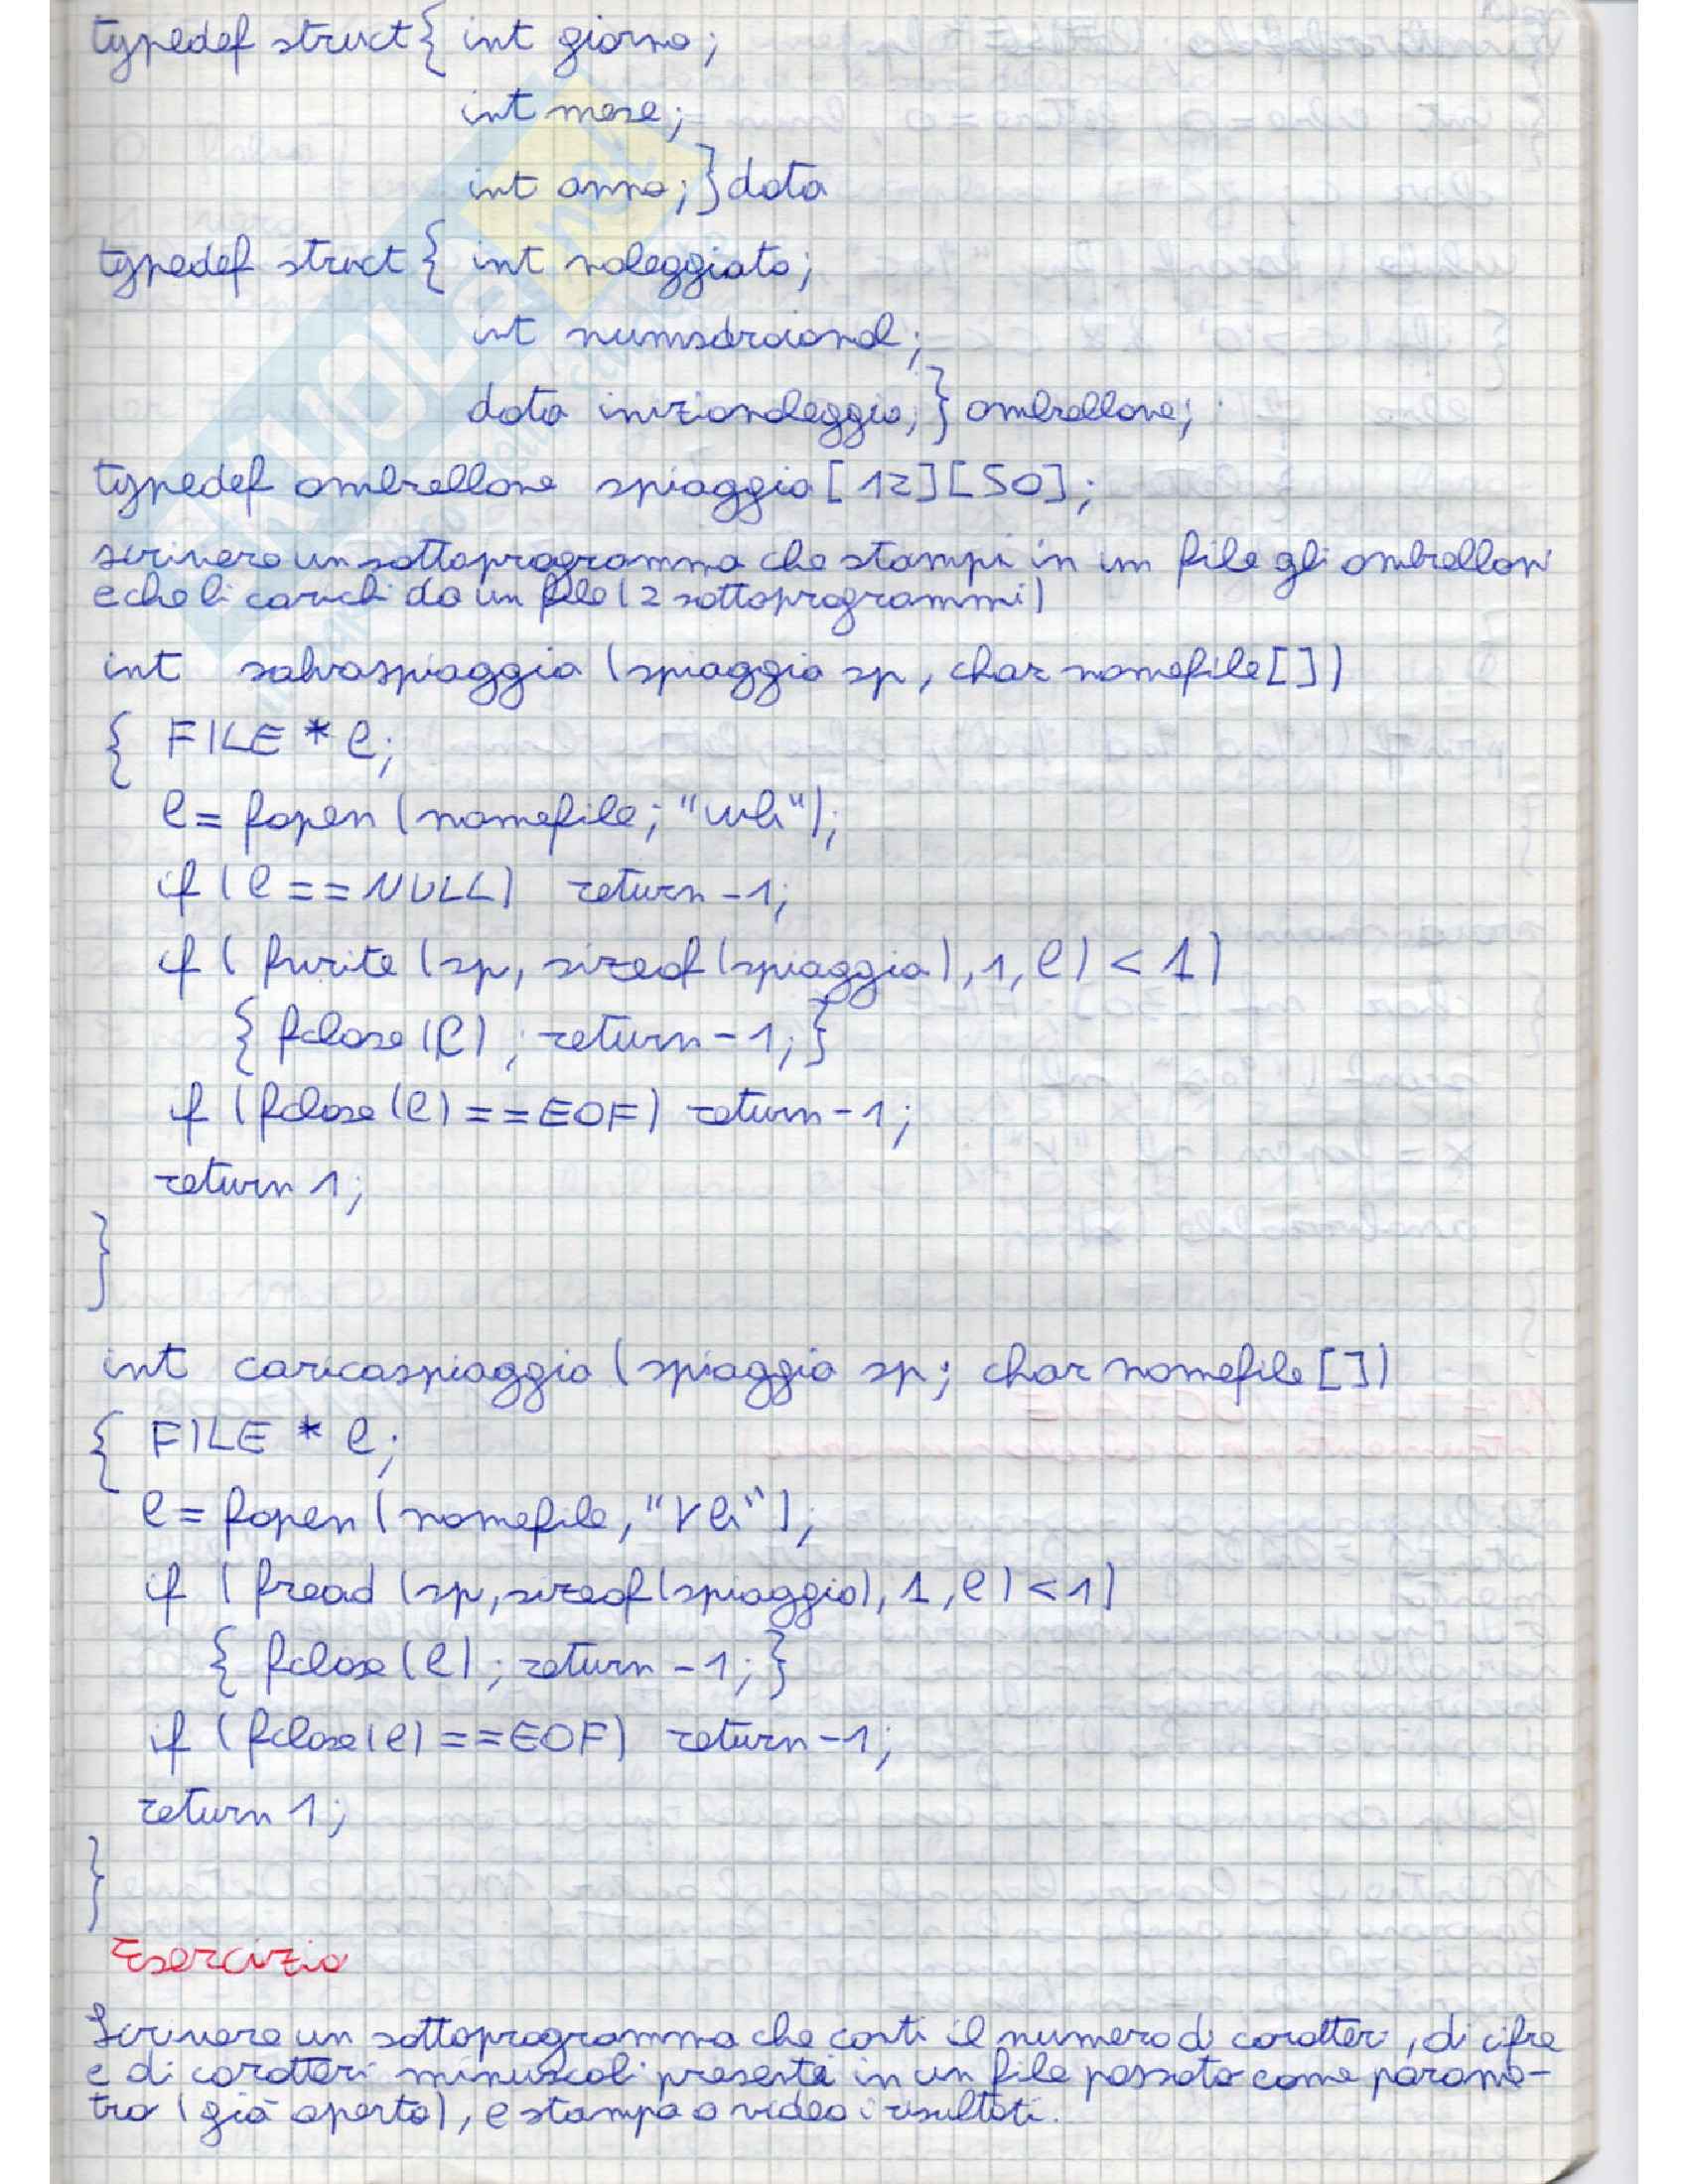 typedef struct { int giorno;
int mese;
int anno; } data
typedef struct { int noleggiato;
int numsdraiond;
data inizionoleggio; } ombrellone;
typedef ombrellone spiaggia [12][50];
scrivere un sottoprogramma che stampi in un file gli ombrelloni
e che li carichi da un file (2 sottoprogrammi)
int salvaspiaggia (spiaggia sp, char nomefile[])
{ FILE * e;
e = fopen (nomefile; "wb");
if (e == NULL) return -1;
if (fwrite (sp, sizeof (spiaggia), 1, e) < 1)
{ fclose (e); return -1; }
if (fclose (e) == EOF) return -1;
return 1;
}
int caricaspiaggia (spiaggia sp; char nomefile [])
{ FILE * e;
e = fopen (nomefile, "rb");
if (fread (sp, sizeof (spiaggia), 1, e) < 1)
{ fclose (e); return -1; }
if (fclose (e) == EOF) return -1;
return 1;
}
Esercizio
Scrivere un sottoprogramma che conti il numero di caratteri, di cifre
e di caratteri minuscoli presenti in un file passato come parame-
tro (già aperto), e stampa a video i risultati.